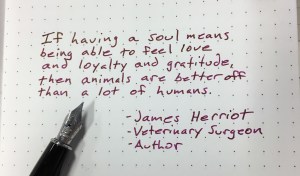 If having a soul means
being able to feel love
and loyalty and gratitude,
then animals are better off
than a lot of humans.
- James Herriot
- Veterinary Surgeon
- Author